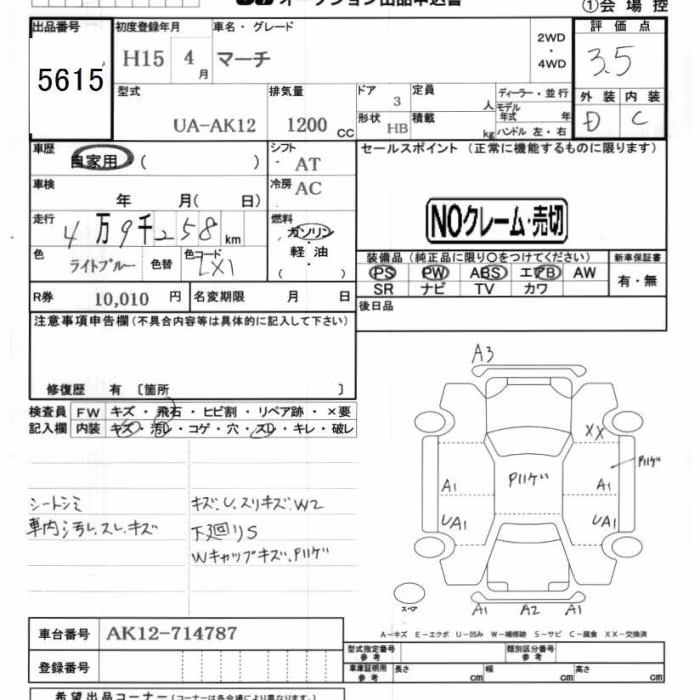 オークション出品申込書
①会場控
出品番号
5615
初度登録年月
H15 4月
車名・グレード
マーチ
2WD・4WD
評価点
3.5
型式
UA-AK12
排気量
1200cc
ドア
3
定員
人
ディーラー・並行
モデル年式 年
形状
HB
積載
kg
ハンドル 左・右
外装 内装
D C
車歴
自家用 ( )
シフト
AT
セールスポイント (正常に機能するものに限ります)
車検
年 月( 日)
冷房
AC
NOクレーム・売切
走行
4万9千258km
燃料
ガソリン・軽油・( )
色
ライトブルー
色替
色コード
LX1
装備品 (純正品に限り〇をつけてください)
新車保証書
PS PW ABS エアB AW
SR ナビ TV カワ
有・無
R券
10,010円
名変期限 月 日
後日品
注意事項申告欄(不具合内容等は具体的に記入して下さい)
修復歴 有 〔箇所 〕
検査員記入欄
FW キズ・飛石・ヒビ割・リペア跡・×要
内装 キズ・汚レ・コゲ・穴・スレ・キレ・破レ
A3
XX
P11ゲ
P11ゲ
A1
A1
UA1
UA1
シートシミ
キズ、U、スリキズ、W2
車内汚レ、スレ、キズ
下廻りS
Wキャップキズ、P11ゲ
スペア
A1 A2 A1
A−キズ E−エクボ U−凹み W−補修跡 S−サビ C−腐食 XX−交換済
車台番号
AK12-714787
型式指定番号 参考
類別区分番号 参考
登録番号
車庫証明用 参考
長さ cm
幅 cm
高さ cm
希望出品コーナー (コーナーは各会場により異なります。)